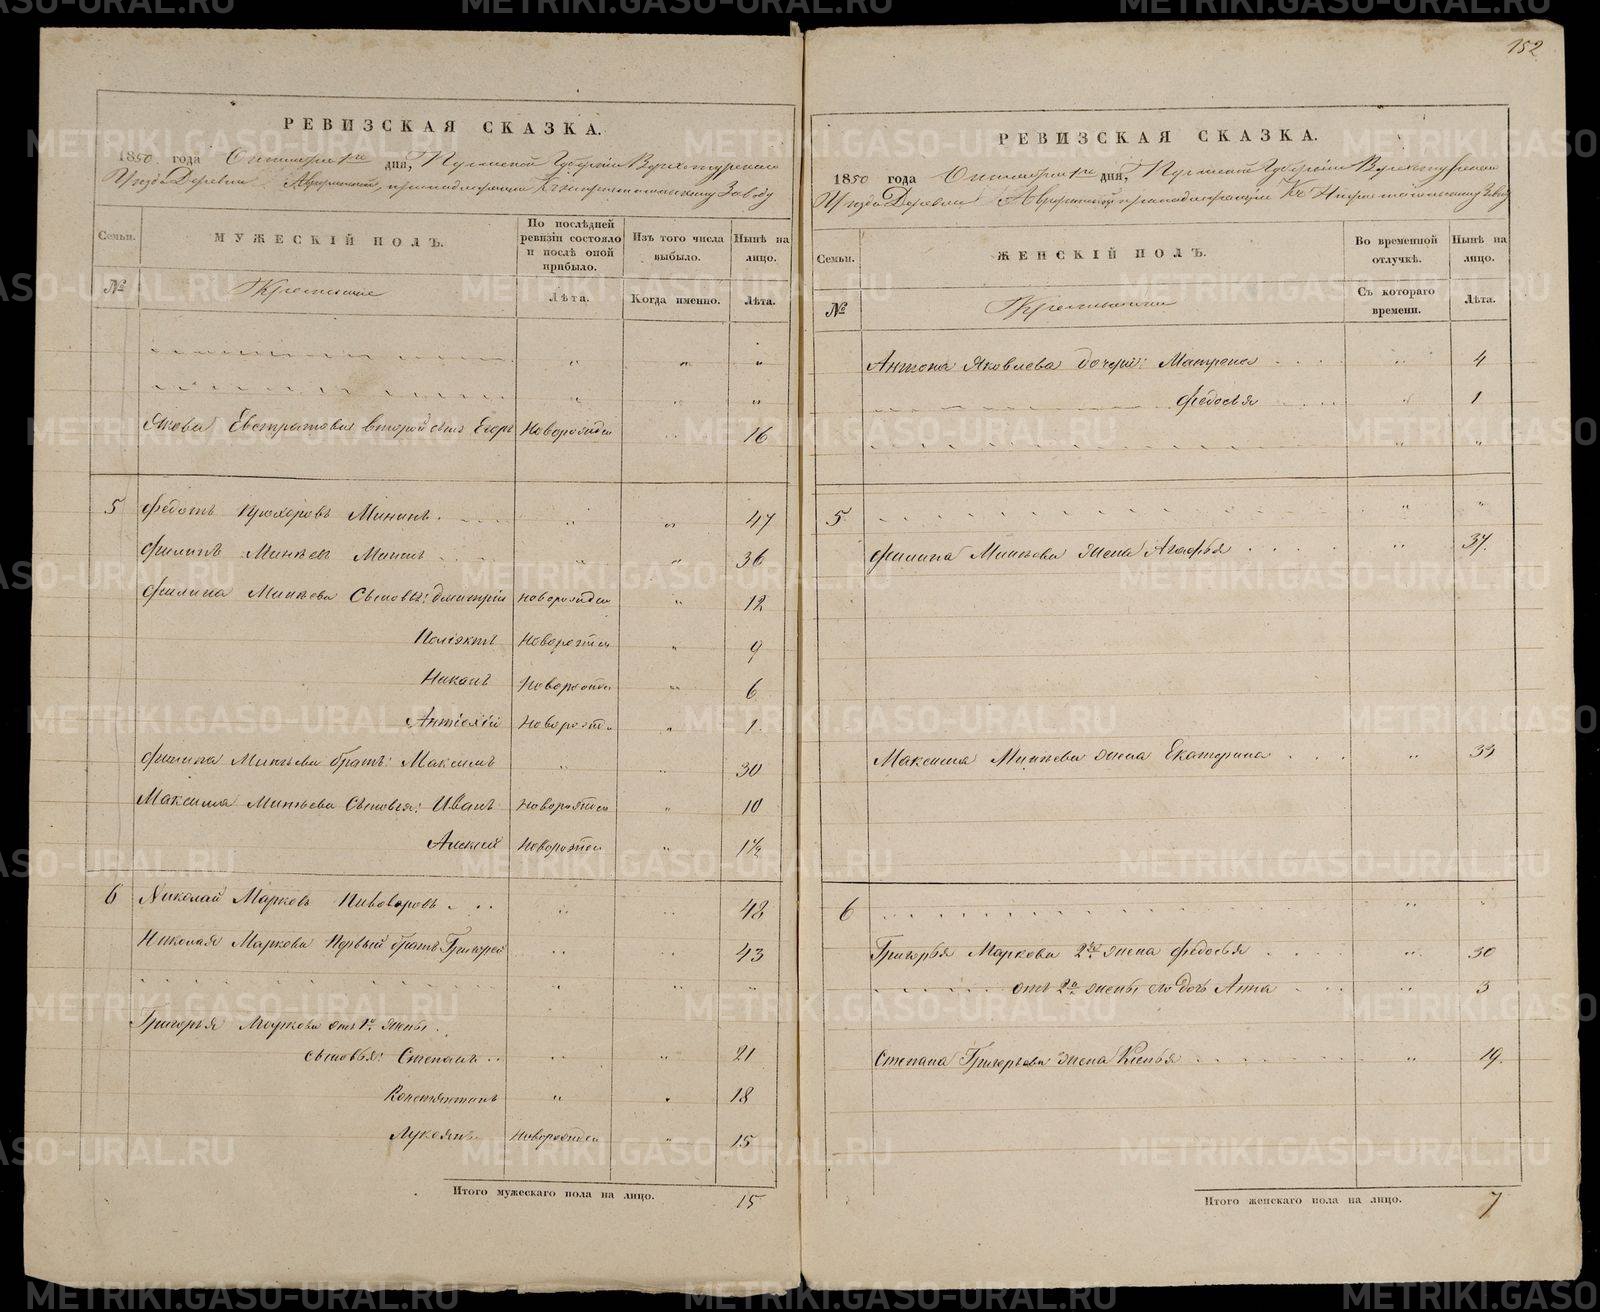 РЕВИЗСКАЯ СКАЗКА.
1850 года Октября 1го дня, Пермской Губернiи Верхотурскаго
Уѣзда Деревни принадлежащей Къ Нижнетагильскому Заводу
Семьи.
МУЖЕСКIЙ ПОЛЪ.
По послѣдней ревизiи состояло и послѣ оной прибыло.
Изъ того числа выбыло.
Нынѣ на лицо.
№
Крестьяне
Лѣта.
Когда именно.
Лѣта.
" " "
" " "
Якова Евстратова второй сынъ Егоръ Новорожден " 16
5 Федотъ Прохоровъ Мининъ . " " 47
Филипъ Минѣевъ " " 36
Филипа Минѣева Сыновья: Дмитрiй новорожден " 12
Полiэктъ Новорожден " 9
Никонъ Новорожден " 6
Новорожден " 1.
Филипа Минѣева братъ: Максимъ " " 30
Максима Минѣева Сыновья: Иванъ Новорожден " 10
Алексѣй Новорожден " 1½
6 Николай Марковъ Пивоваровъ . . . " " 48
Николая Маркова Первый братъ Григорей " " 43
" " "
Григорья Маркова отъ 1й жены
сыновья: Степанъ . . " " 21
Константинъ " " 18
Лукоянъ Новорожден " 15
Итого мужескаго пола на лицо. 15
152
РЕВИЗСКАЯ СКАЗКА.
1850 года Октября 1го дня, Пермской Губернiи Верхотурскаго
Уѣзда Деревни принадлежащей Къ Нижнетагильскому Заводу
Семьи.
ЖЕНСКIЙ ПОЛЪ.
Во временной отлучкѣ.
Нынѣ на лицо.
№
Крестьянки
Съ котораго времени.
Лѣта.
Антона Яковлева дочери: Матрона . . . " 4
Федосья . . . . " 1
" "
5 " "
Филипа Минѣева жена Агафья . . . . " 37.
Максима Минѣева жена Екатерина . . . " 33
6 " "
Григорья Маркова 2я жена Федосья . . . . " 30
отъ 2й жены его дочь Анна . . . " 3
Степана Григорьева жена Ксенья . . . . . " 19.
Итого женскаго пола на лицо. 7
METRIKI.GASO-URAL.RU